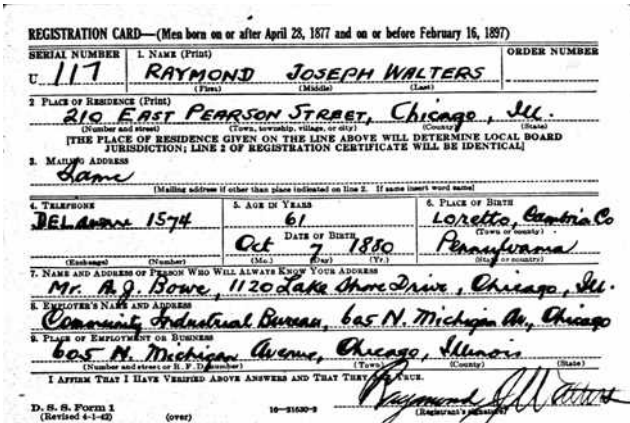 REGISTRATION CARD—(Men born on or after April 28, 1877 and on or before February 16, 1897)
SERIAL NUMBER 1. NAME (Print) ORDER NUMBER
U 117 RAYMOND JOSEPH WALTERS
(First) (Middle) (Last)
2 PLACE OF RESIDENCE (Print)
210 EAST PEARSON STREET, Chicago, Ill.
(Number and street) (Town, township, village, or city) (County) (State)
[THE PLACE OF RESIDENCE GIVEN ON THE LINE ABOVE WILL DETERMINE LOCAL BOARD
JURISDICTION; LINE 2 OF REGISTRATION CERTIFICATE WILL BE IDENTICAL]
3. MAILING ADDRESS
Same
[Mailing address if other than place indicated on line 2. If same insert word same]
4. TELEPHONE 5. AGE IN YEARS 6. PLACE OF BIRTH
DELaware 1574 61 Loretto, Cambria Co
DATE OF BIRTH (Town or county)
Oct 7 1880 Pennsylvania
(Exchange) (Number) (Mo.) (Day) (Yr.) (State or country)
7. NAME AND ADDRESS OF PERSON WHO WILL ALWAYS KNOW YOUR ADDRESS
Mr. A.J. Bowe, 1120 Lake Shore Drive, Chicago, Ill.
8. EMPLOYER'S NAME AND ADDRESS
Community Industrial Bureau, 605 N. Michigan Av., Chicago
9. PLACE OF EMPLOYMENT OR BUSINESS
605 N. Michigan Avenue, Chicago, Illinois
(Number and street or R. F. D. number) (Town) (County) (State)
I AFFIRM THAT I HAVE VERIFIED ABOVE ANSWERS AND THAT THEY ARE TRUE.
Raymond J Walters
D. S. S. Form 1
(Revised 4-1-42) (over) 16—21630-2 (Registrant's signature)